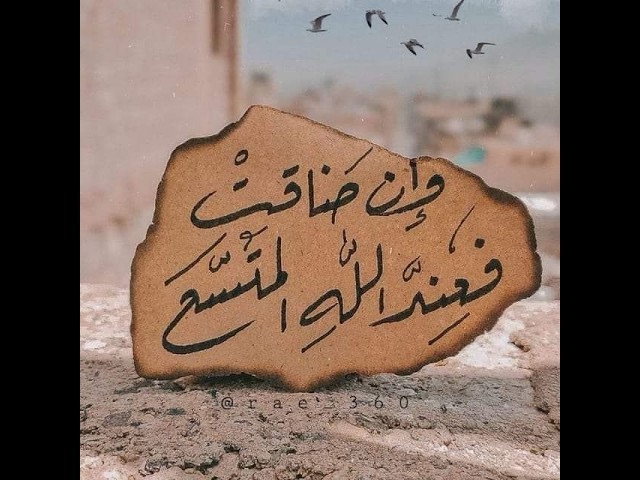 وإن ضاقتْ
فعِندَ اللّٰهِ المتّسَع
@rae.360